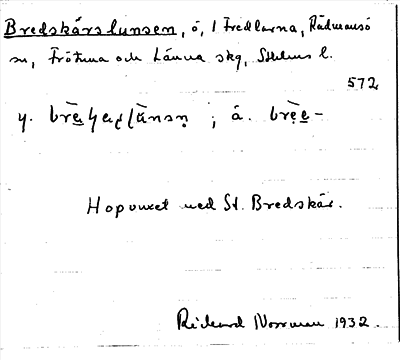 Bredskärslunsen, ö, I Fredlarna, Rådmansö
sn, Frötuna och Länna skg, Sthlms l.
572
y. 
; ä. 
Hopvuxet med St. Bredskär.
Rickard Norrman 1932.